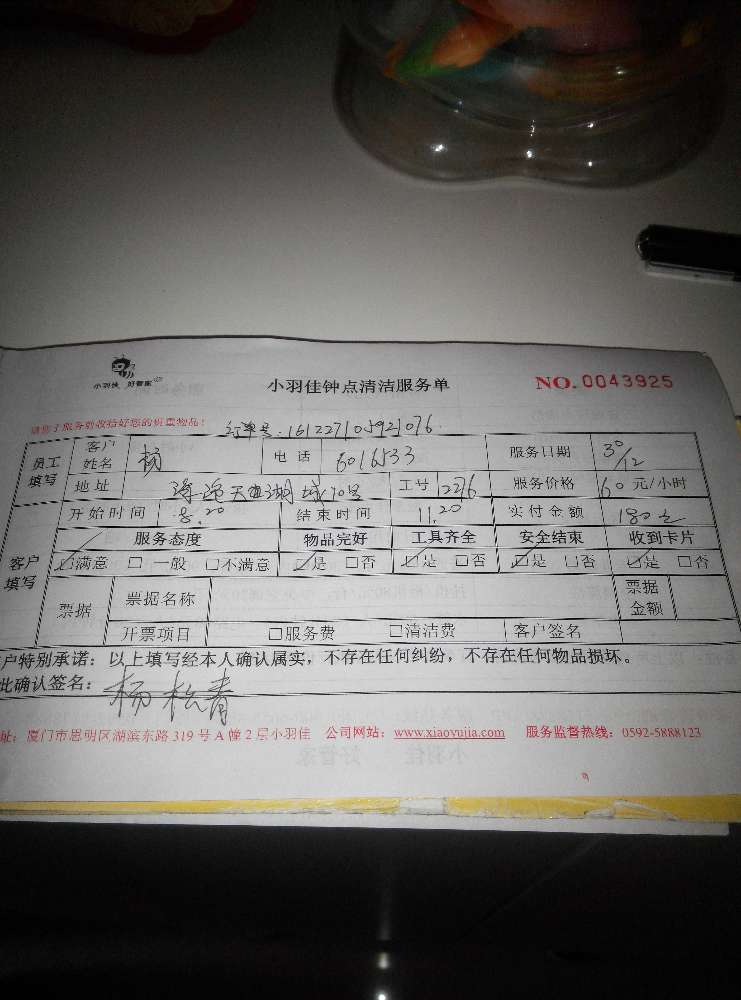 小羽佳 好管家
小羽佳钟点清洁服务单
NO.0043925
请您于服务前收拾好您的贵重物品!
订单号:161227105921076
员工填写 客户姓名 杨 电话 6016533 服务日期 30/12
地址 天湖城70号 工号 2276 服务价格 60元/小时
客户填写 开始时间 8.20 结束时间 11.20 实付金额 180元
服务态度 物品完好 工具齐全 安全结束 收到卡片
☑满意 □一般 □不满意 ☑是 □否 ☑是 □否 ☑是 □否 ☑是 □否
票据 票据名称 票据金额
开票项目 □服务费 □清洁费 客户签名
户特别承诺:以上填写经本人确认属实,不存在任何纠纷,不存在任何物品损坏。
此确认签名:杨松青
址:厦门市思明区湖滨东路319号A幢2层小羽佳 公司网站:www.xiaoyujia.com 服务监督热线:0592-5888123